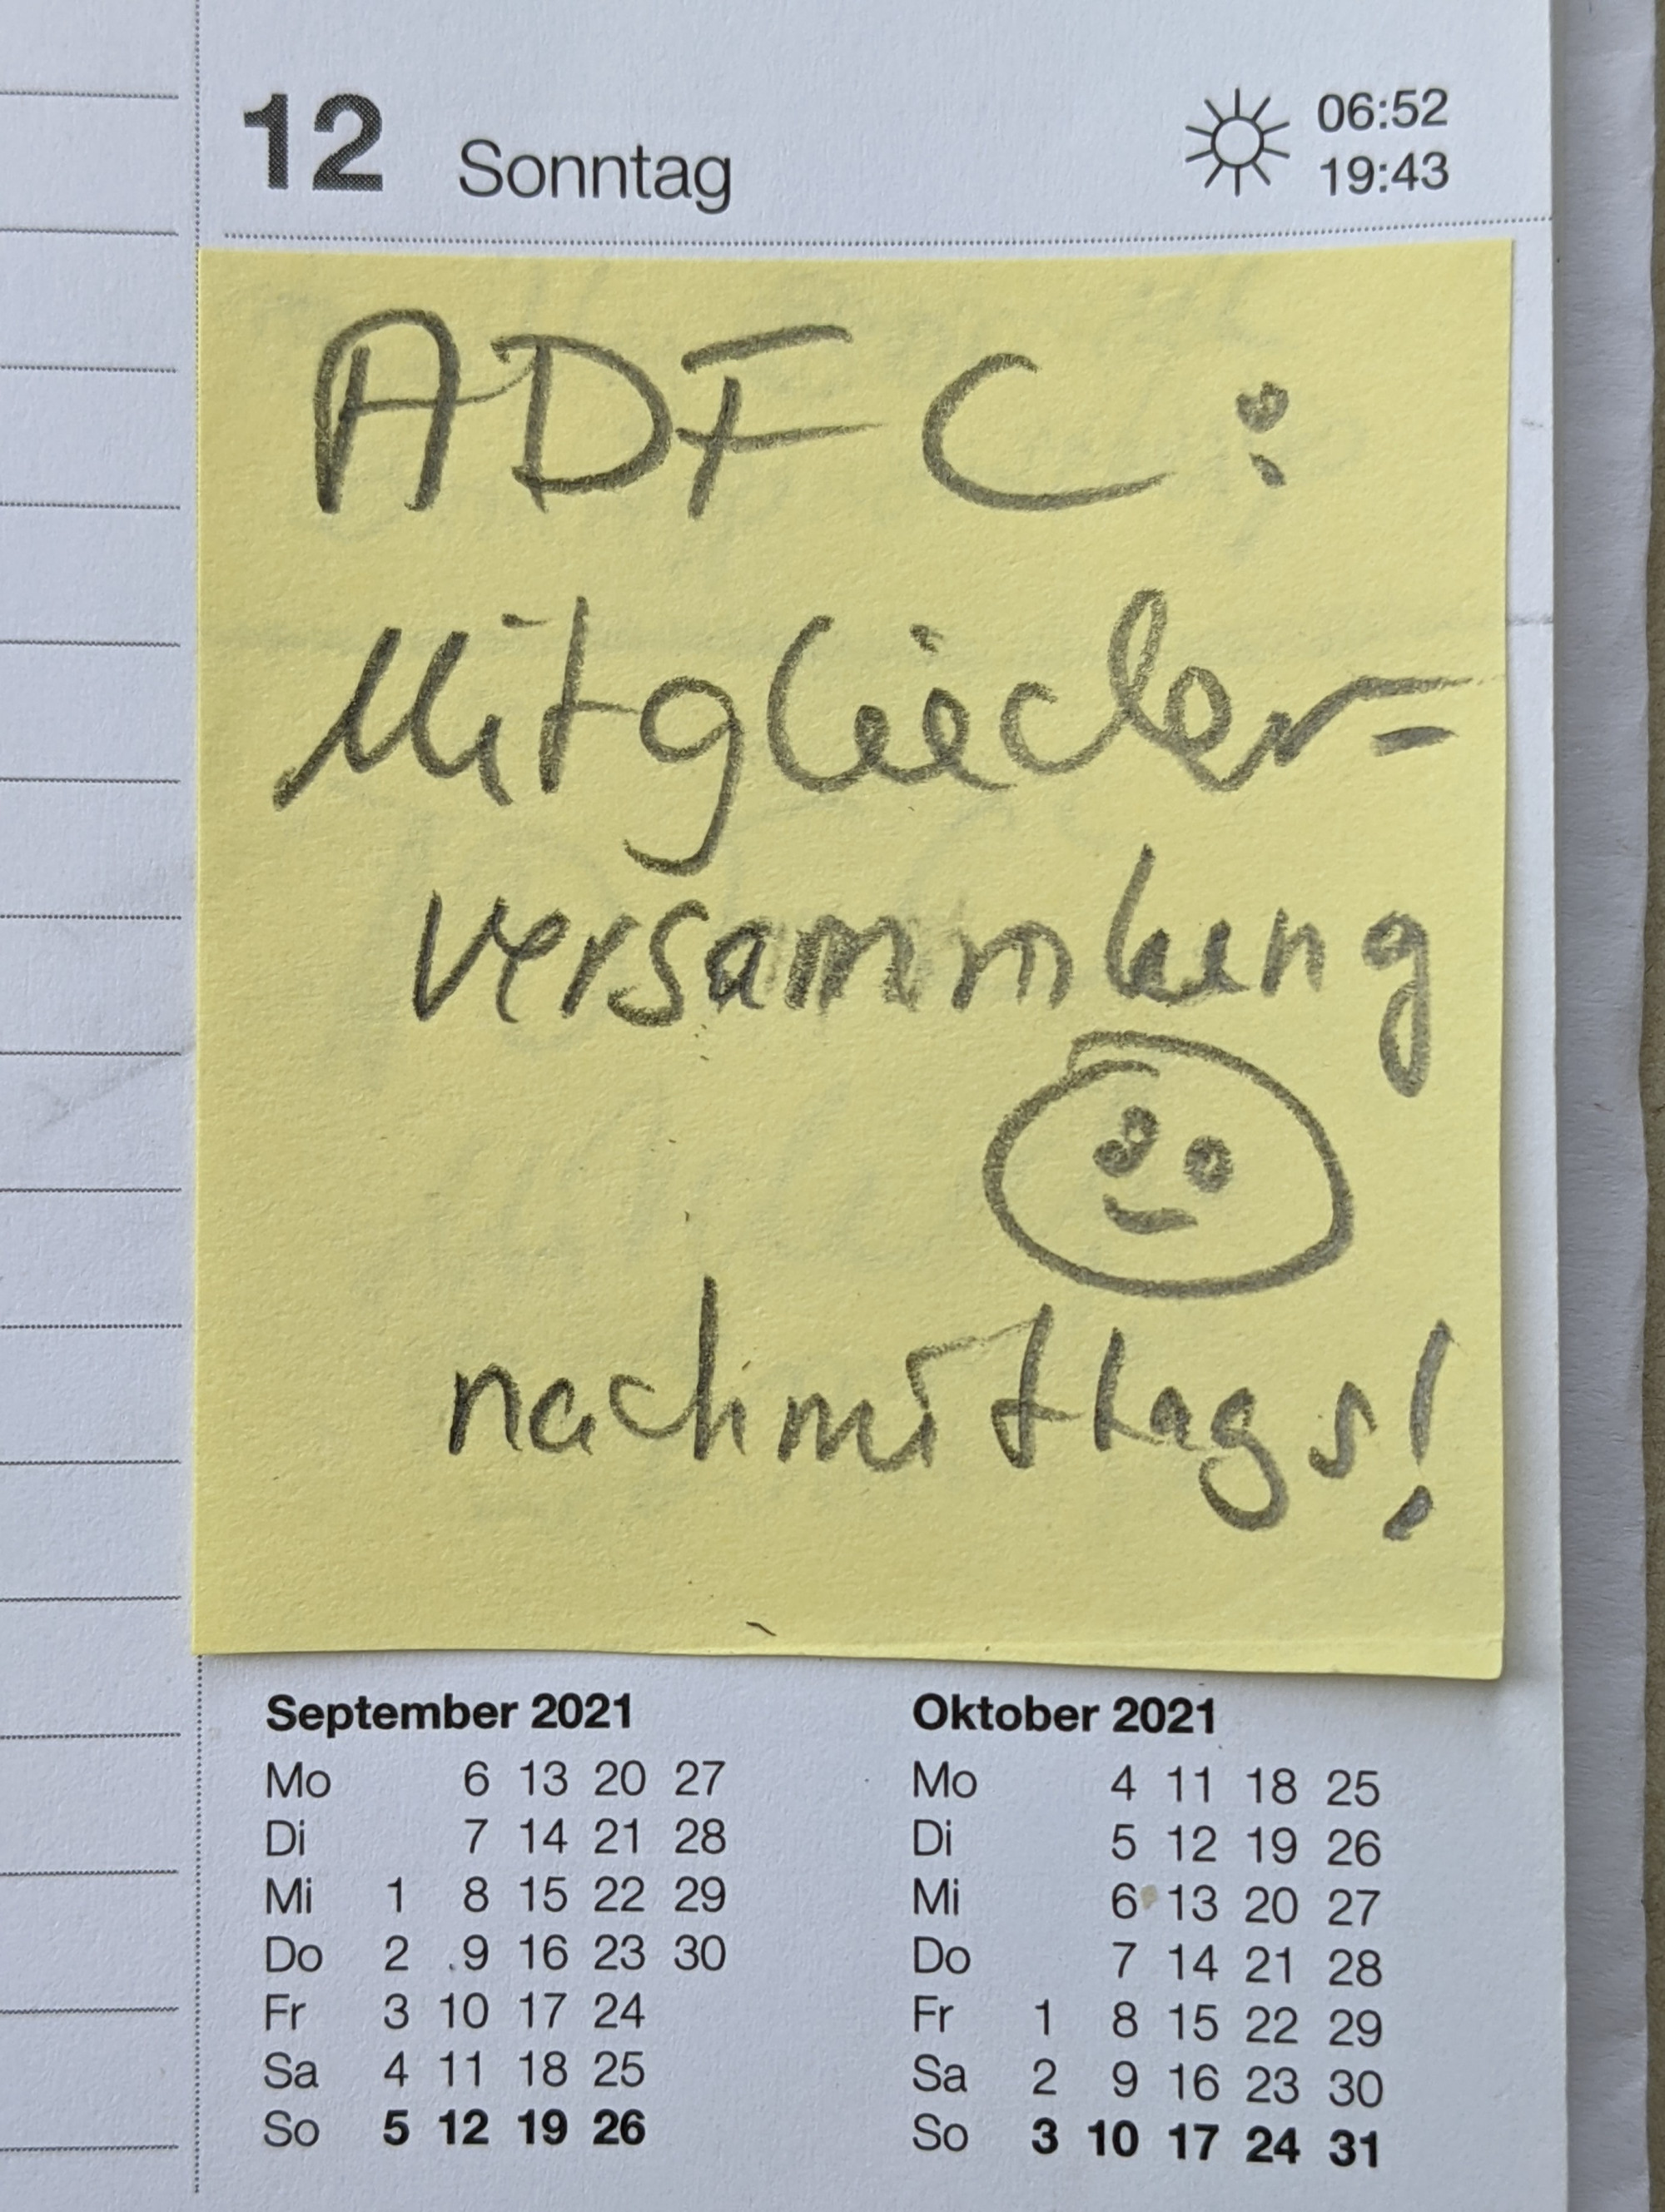 12 Sonntag 06:52
19:43
ADFC:
Mitglieder=
versammlung
nachmittags!
September 2021
Mo 6 13 20 27
Di 7 14 21 28
Mi 1 8 15 22 29
Do 2 9 16 23 30
Fr 3 10 17 24
Sa 4 11 18 25
So 5 12 19 26
Oktober 2021
Mo 4 11 18 25
Di 5 12 19 26
Mi 6 13 20 27
Do 7 14 21 28
Fr 1 8 15 22 29
Sa 2 9 16 23 30
So 3 10 17 24 31